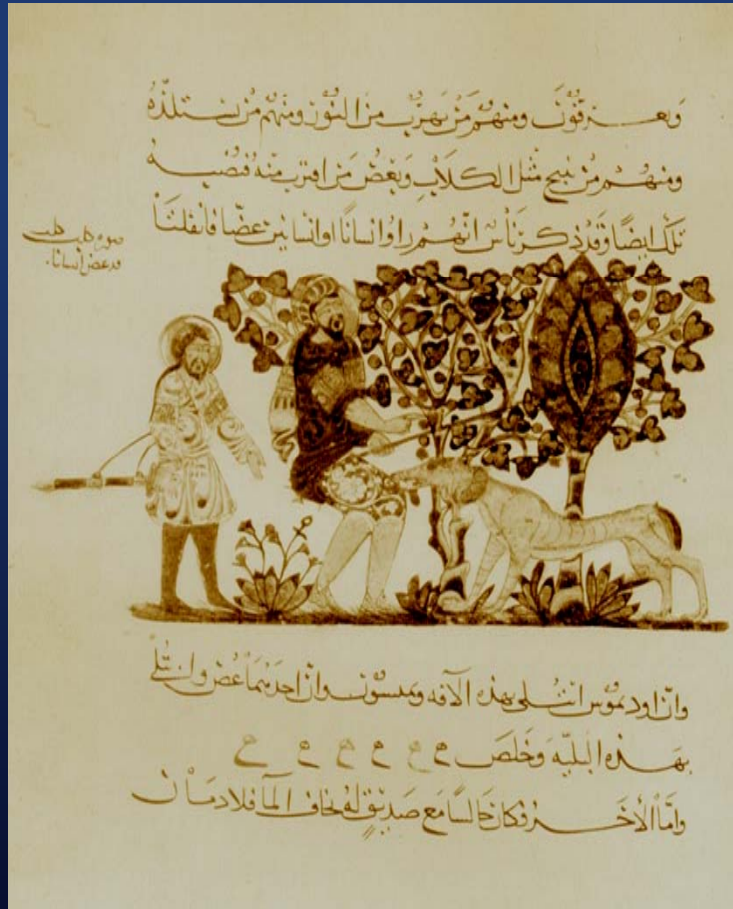 ويعرقون ومنهم من يهرب من النور ومنهم من يستلذه
ومنهم من ينبح مثل الكلاب ويعض من اقترب منه فيصيبه
تلك ايضا وقد ذكر ناس انهم راوا انسانا او انسانين عضا فانفلتا
صورة كلب كلب
قد عض انسانا
وان اوديموس ابتلى بهذه الآفه وان احدهما عض وابتلى
بهذه البليه وخلص
واما الآخر فكان جالسا مع صديق له يخاف الما فلا